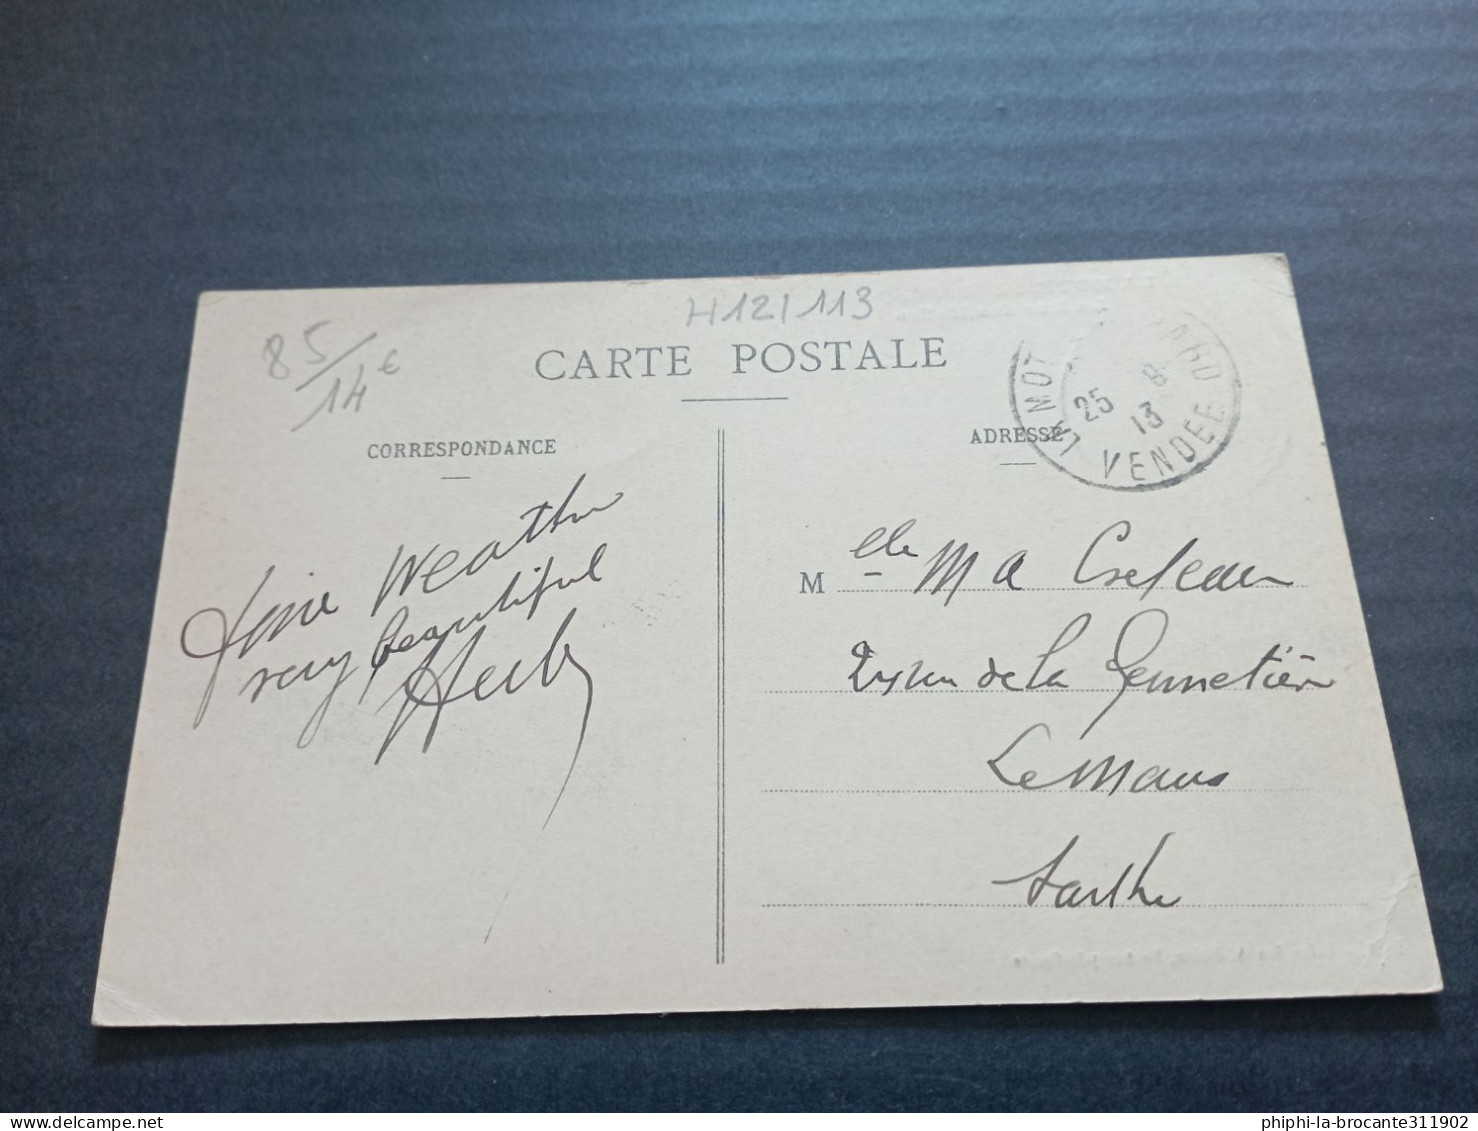 H121113
85/14€
CARTE POSTALE
LA MOT
VENDEE
25 8
13
CORRESPONDANCE
ADRESSE
fine Weather
very beautiful
M elle M A
rue de la
Le Mans
Sarthe
phiphi-la-brocante311902